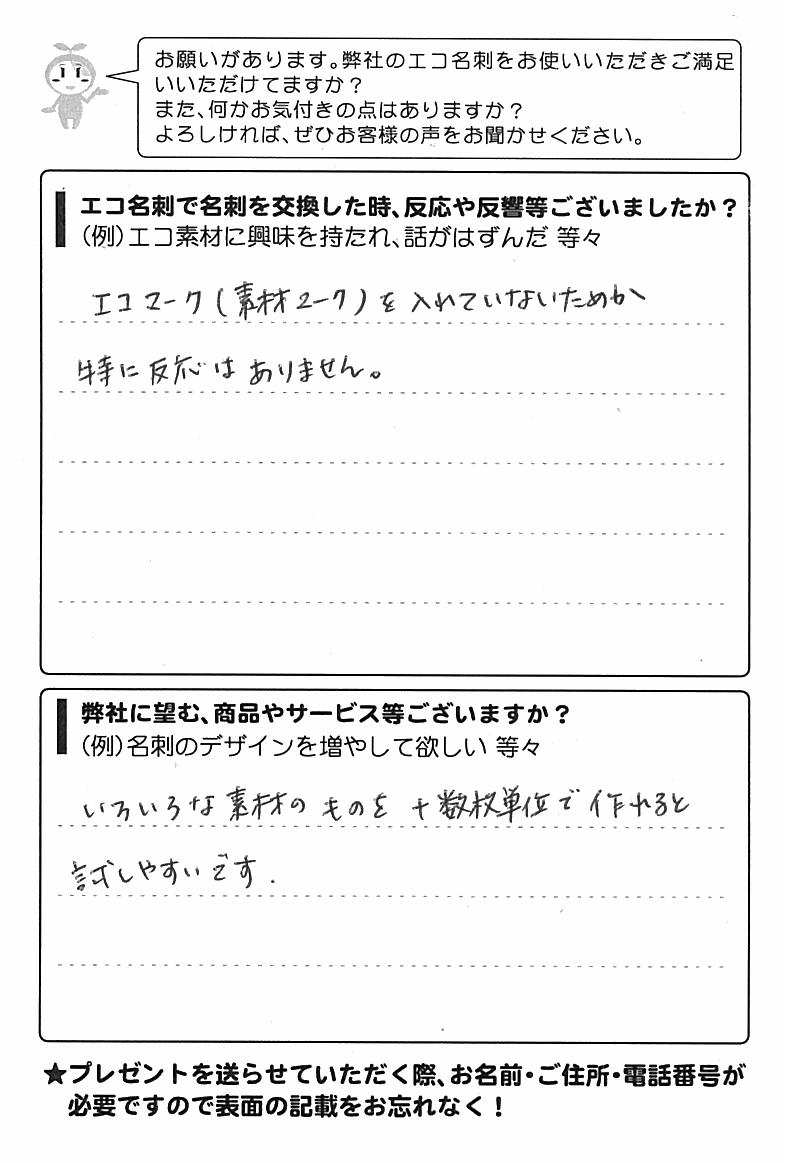 お願いがあります。弊社のエコ名刺をお使いいただきご満足
いいただけてますか？
また、何かお気付きの点はありますか？
よろしければ、ぜひお客様の声をお聞かせください。
エコ名刺で名刺を交換した時、反応や反響等ございましたか？
（例）エコ素材に興味を持たれ、話がはずんだ 等々
エコマーク（素材マーク）を入れていないためか
特に反応はありません。
弊社に望む、商品やサービス等ございますか？
（例）名刺のデザインを増やして欲しい 等々
いろいろな素材のものを十数枚単位で作れると
試しやすいです.
★プレゼントを送らせていただく際、お名前・ご住所・電話番号が
必要ですので表面の記載をお忘れなく！